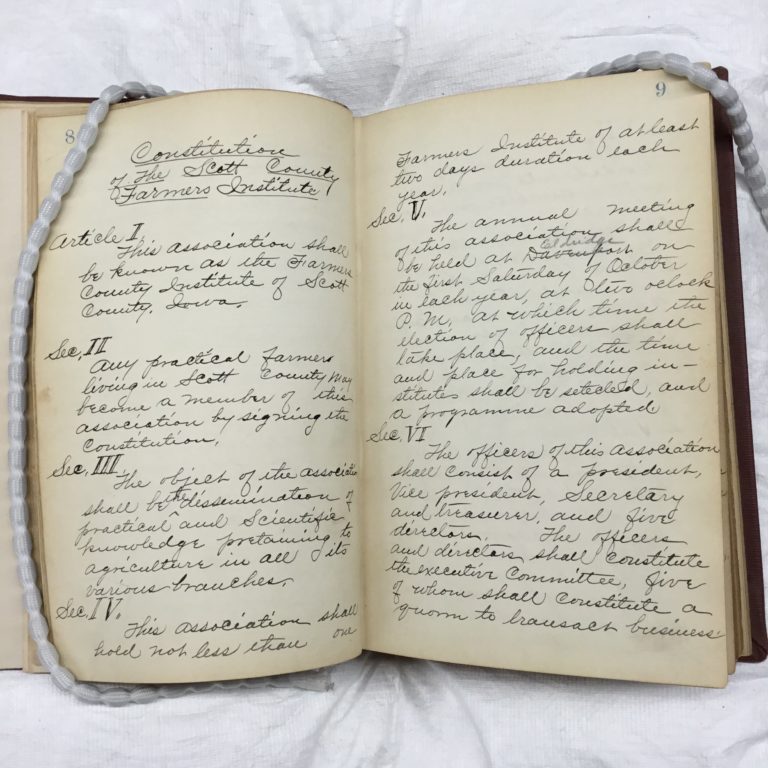 8
Constitution
of The Scott County
Farmers Institute
Article I.
This association shall
be known as the Farmers
County Institute of Scott
County, Iowa.
Sec, II
Any practical farmers
living in Scott County may
become a member of this
association by signing the
Constitution.
Sec, III
The object of the association
shall be the dissemination of
practical and Scientific
knowledge pretaining to
agriculture in all its
various branches.
Sec, IV.
This association shall
hold not less than one
9
Farmers Institute of at least
two days duration each
year.
Sec, V.
The annual meeting
of this association shall
Eldridge
be held at Davenport on
the first Saturday of October
in each year, at two oclock
P. M, at which time the
election of officers shall
take place, and the time
and place for holding in-
stitutes shall be selected, and
a programme adopted.
Sec, VI
The officers of this association
shall consist of a president,
Vice president, Secretary
and treasurer, and five
directors. The officers
and directors shall constitute
the executive Committee, five
of whom shall Constitute a
quorm to transact business.